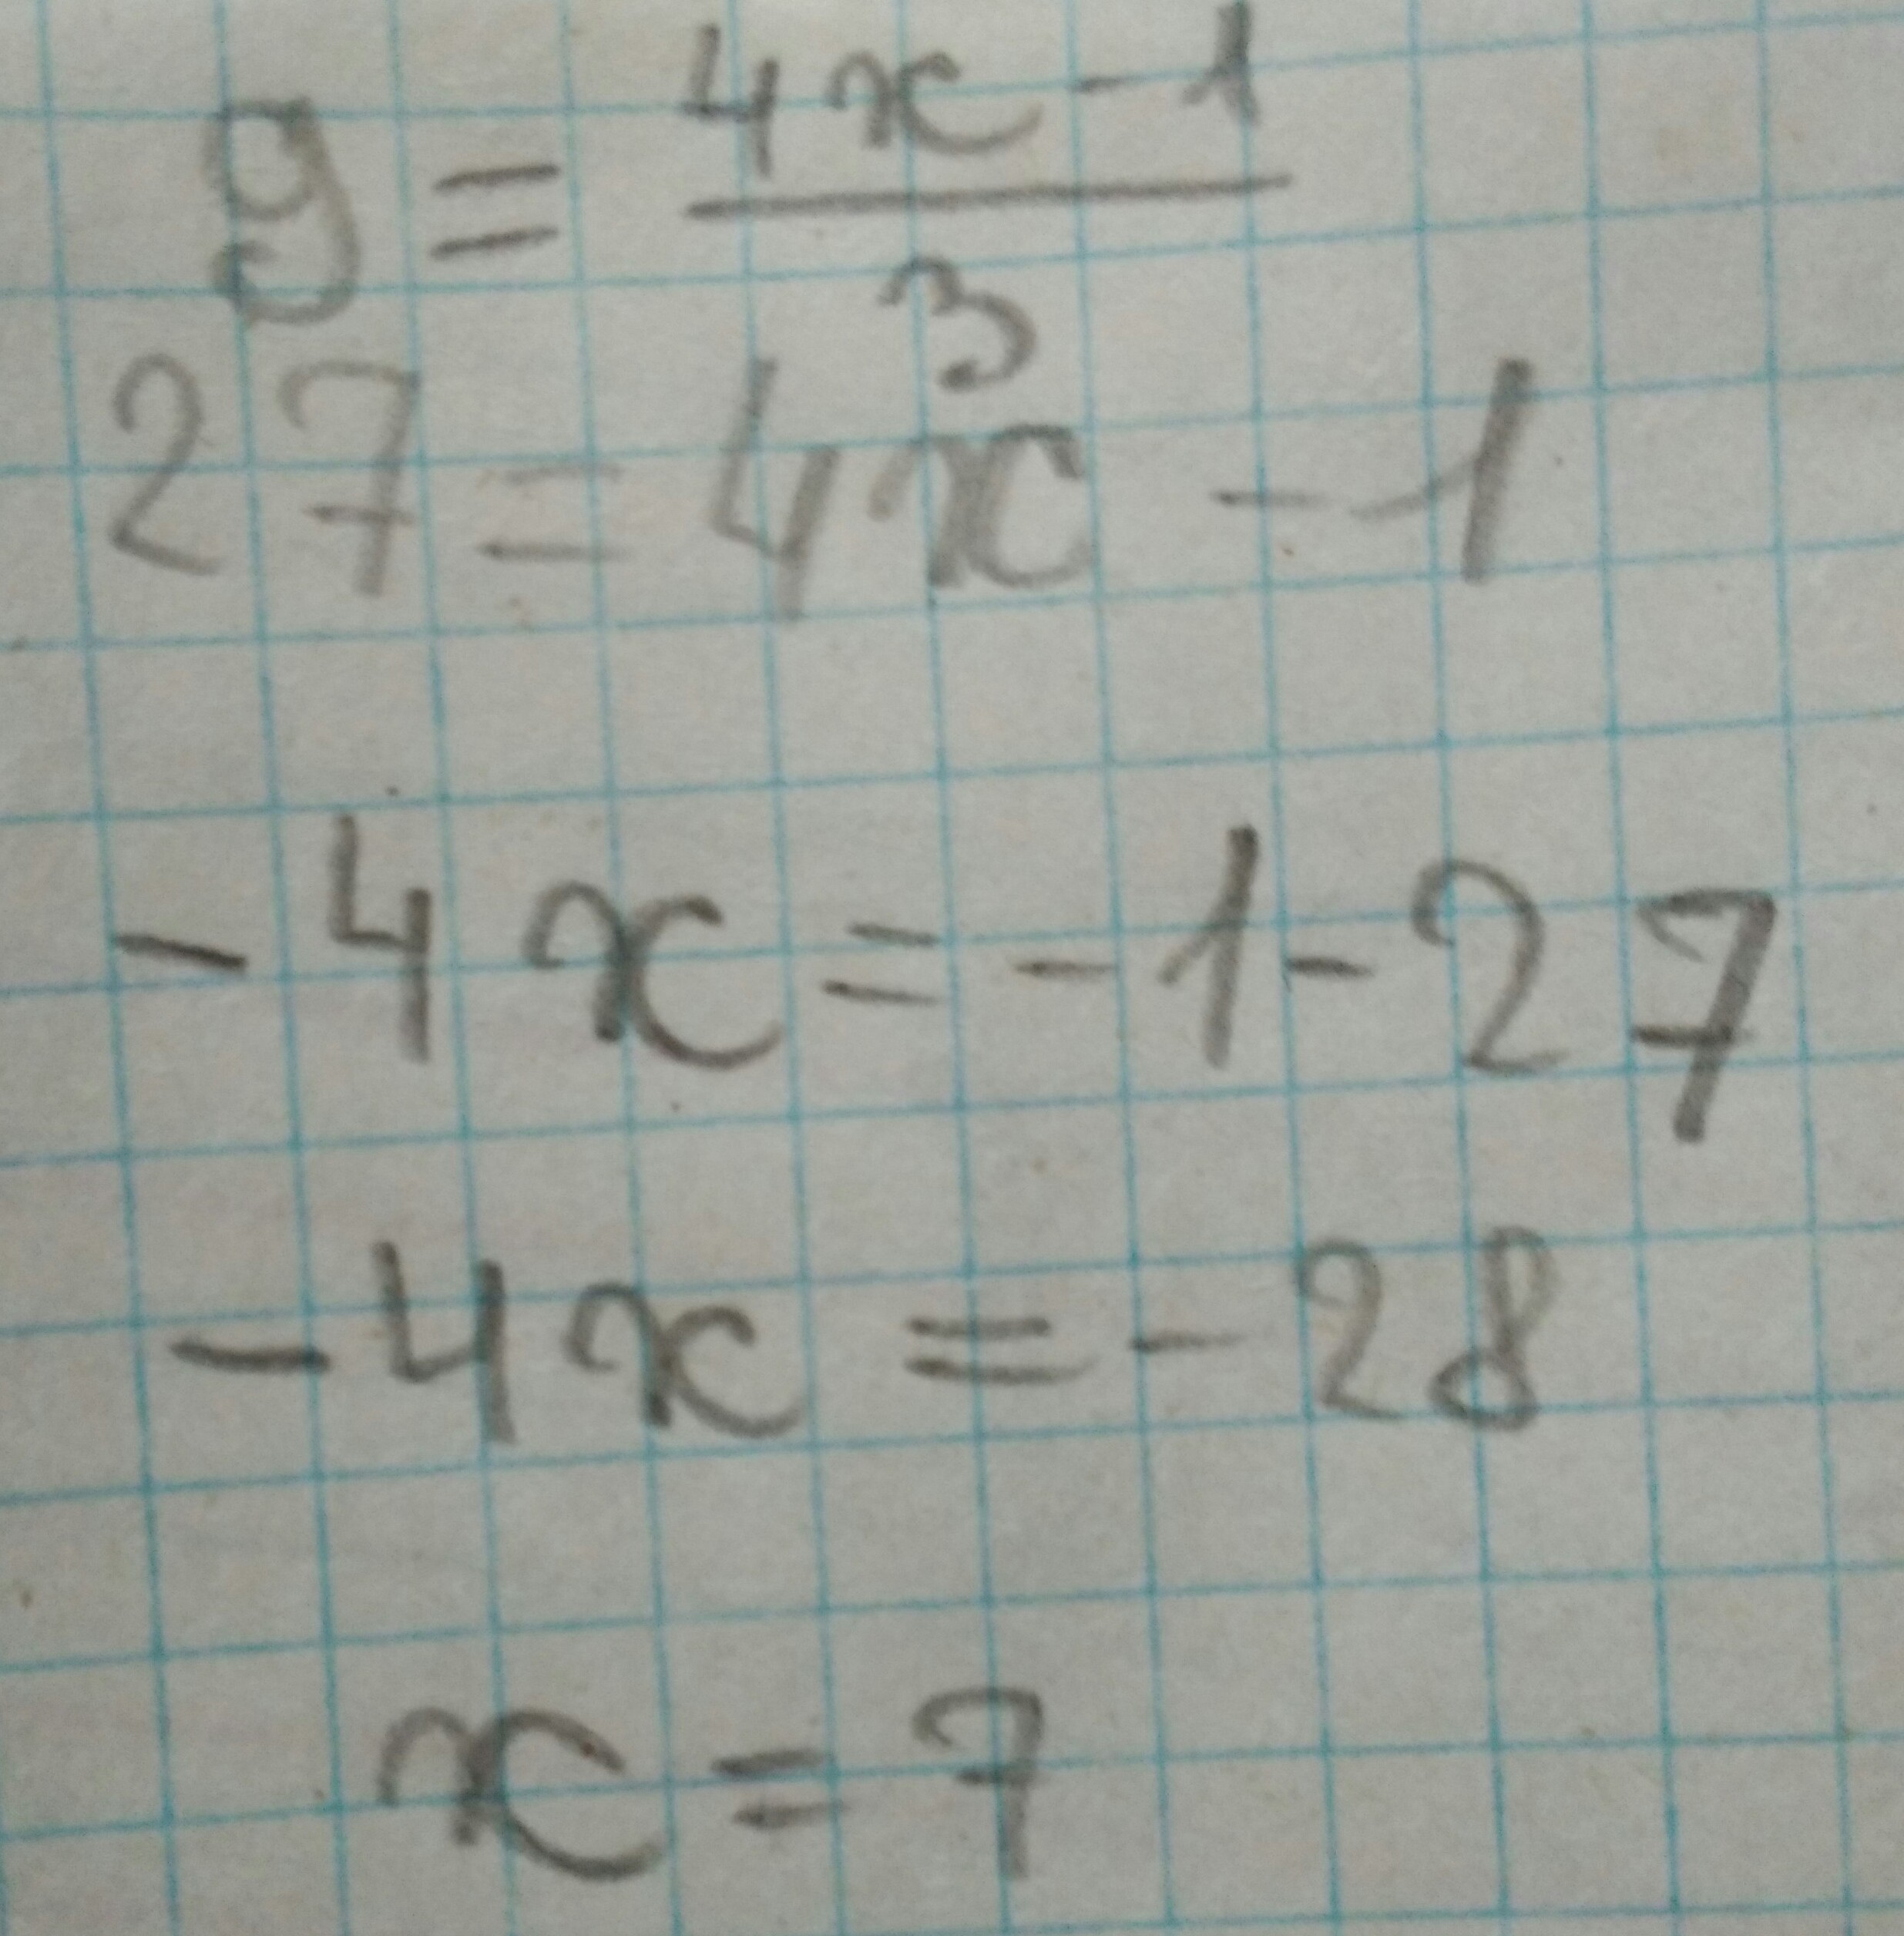 9 = (4x - 1) / 3
27 = 4x - 1
-4x = -1 - 27
-4x = -28
x = 7